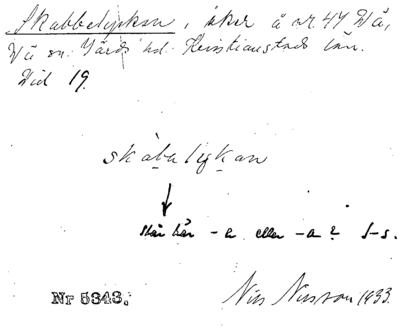 Skabbelyckan, åker å nr. 44 Vä,
Vä sn. Gärds hd. Kristianstads län.
Vid 19.
skabalykan
står här -e eller -a? 
Nr 5343.
Nils Nilsson 1933.